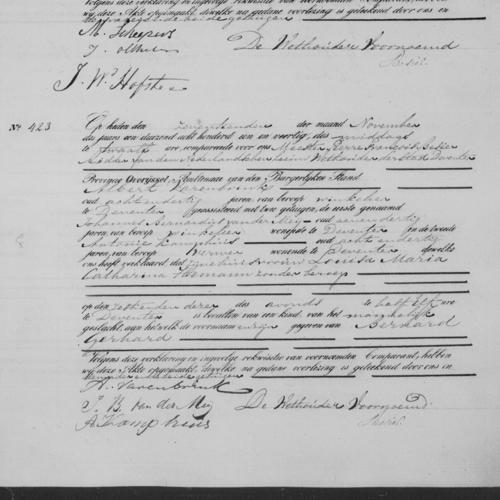 wij deze Akte opgemaakt, dewelke na gedane voorlezing is geteekend door ons en
M. Scheepers
De Wethouder Voornoemd
J. W. Hofste
No. 423
Op heden den zeventienden der maand November
des jaars een duizend acht honderd een en veertig, des middags
te twaalf ure, compareerde voor ons Meester Pierre François
Ridder van den Nederlandschen Leeuw Wethouder der stad Deventer
Provincie Overijssel, Ambtenaar van den Burgerlijken Stand
Albert Varenbrink
oud achtendertig jaren, van beroep winkelier
te Deventer geassisteerd met twee getuigen, de eerste genaamd
Johannes Bernardus van der Meij oud eenendertig
jaren, van beroep winkelier wonende te Deventer en de tweede
Antonie Kamphuis oud achtendertig
jaren, van beroep wonende te Deventer dewelke
ons heeft verklaard dat zijne huisvrouw Louisa Maria
Catharina zonder beroep
op den zestienden dezer des avonds te half elf ure
te Deventer is bevallen van een kind van het mannelijk
geslacht, aan hetwelk de voornaam wordt gegeven van Bernard
Gerhard
Volgens deze verklaring en ingevolge rekwisitie van voornoemden Comparant, hebben
wij deze Akte opgemaakt, dewelke na gedane voorlezing is geteekend door ons en
A. Varenbrink
J. B. van der Meij
De Wethouder Voornoemd
A Kamphuis